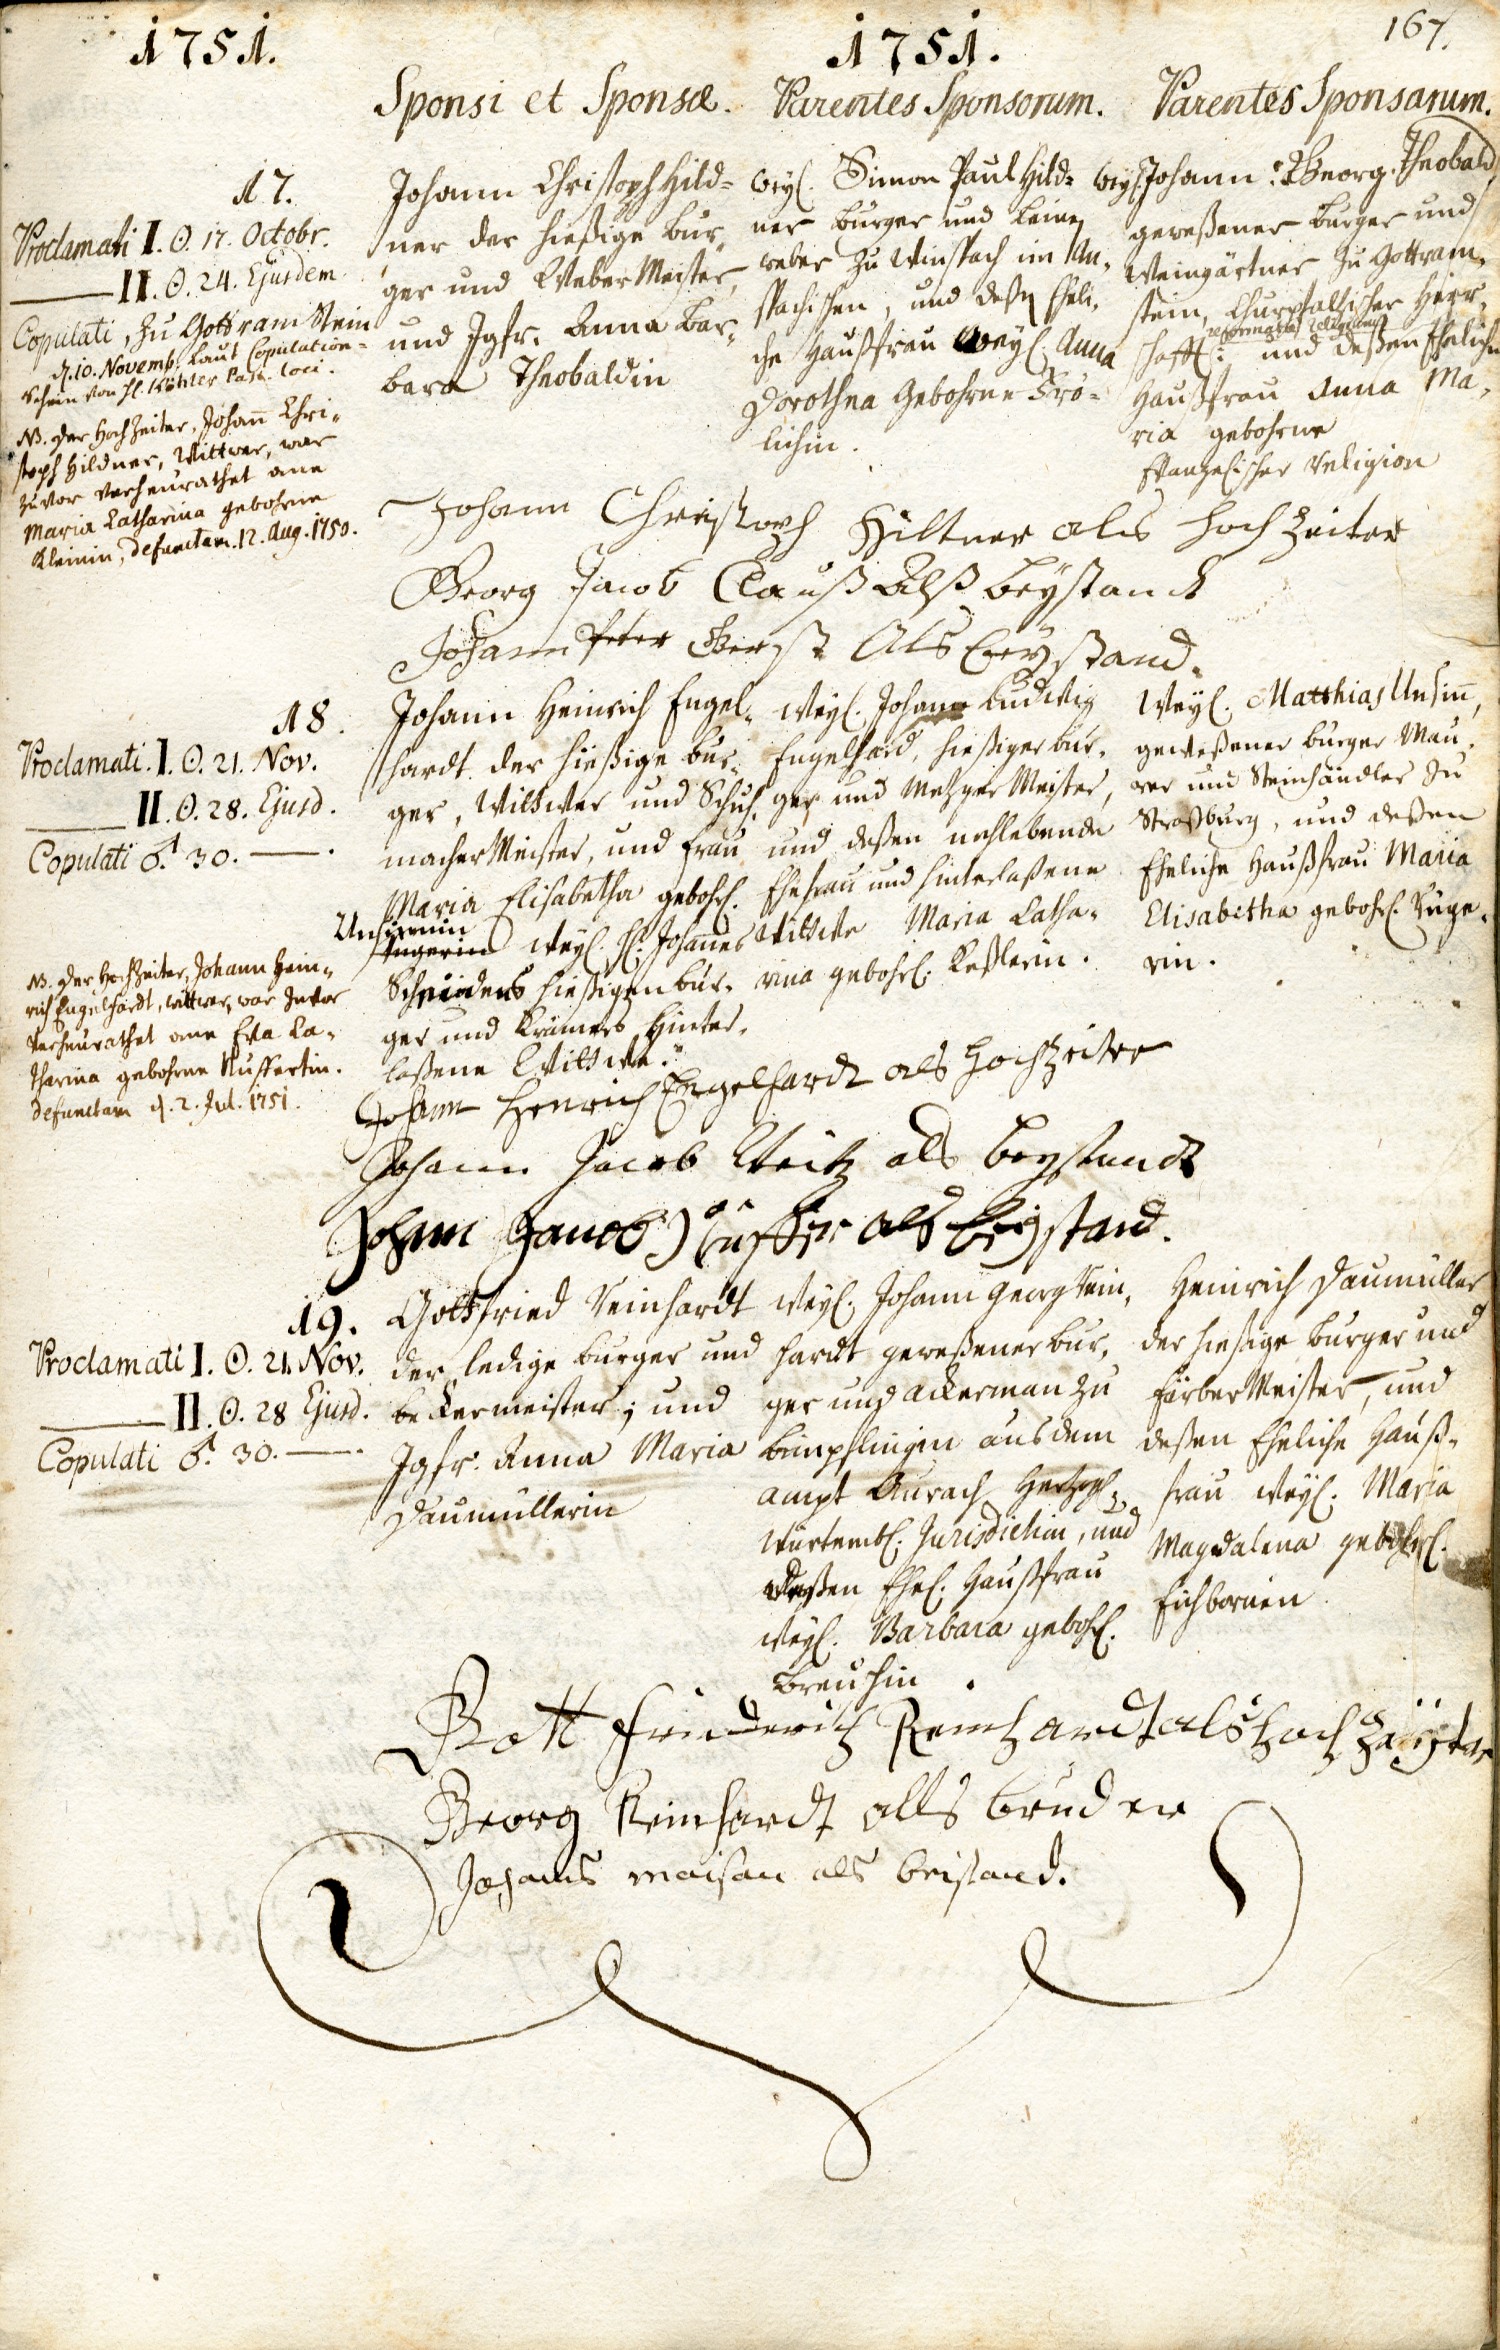 1751.
1751.
167.
Sponsi et Sponsæ.
Parentes Sponsorum.
Parentes Sponsarum.
17.
Proclamati I. ☉. 17. Octobr.
II. ☉. 24. Ejusdem
Copulati, zu Gottramstein
d. 10. Novemb. laut Copulation-
Schein von H. Köhler Past. loci.
NB. der Hochzeiter, Johann Chri-
stoph Hildner, Wittwer, war
zuvor verheurathet ane
Maria Catharina gebohrne
Kleinin, defunctam. 12. Aug. 1750.
Johann Christoph Hild-
ner der hießige bur-
ger und Weber Meister,
und Jgfr. Anna Bar-
bara Theobaldin
weyl. Simon Paul Hild-
ner burger und Leinen
weber zu Winspach im An-
spachischen, und deßen Eheli-
che Haußfrau weyl. Anna
Dorothea gebohrne Frö-
lichin.
weyl. Johann Georg Theobald
geweßener burger und
Weingärtner zu Gottram-
stein, Churpfaltzischer Herr-
schafft: und deßen Ehelichen
reformirter Religion
Haußfrau Anna Ma-
ria gebohrne
Evangelischer Religion
Johann Christoph Hiltner als hochzeiter
Georg Jacob Clauß Alß beystandt
Johann Peter Gerst Als beystand.
18.
Proclamati. I. ☉. 21. Nov.
II. ☉. 28. Ejusd.
Copulati ♂. 30.
NB. der Hochzeiter, Johann Hein-
rich Engelhardt, wittwer, war zuvor
verheurathet ane Eva Ca-
tharina gebohrne Kuffertin.
defunctam d. 2. Jul. 1751.
Johann Heinrich Engel-
hardt der hießige bur-
ger, Wittwer und Schuh-
macher Meister, und frau
Maria Elisabetha gebohrl.
Unsinnin
weyl. H. Johannes
Schneiders hießigen bur-
ger und Krämers hinter-
laßene Wittwe.
weyl. Johann Ludwig
Engelhard, hießiger bur-
ger und Metzger Meister,
und deßen nochlebende
Ehefrau und hinterlaßene
Wittwe Maria Catha-
rina gebohrl. Keßlerin.
Weyl. Matthias Unsinn,
geweßener burger Mau-
rer und Steinhändler zu
Straßburg, und deßen
Eheliche Haußfrau Maria
Elisabetha gebohrl. Unge-
rin.
Johann Henrich Engelhardt als hochzeiter
Johann Jacob Veitz als beystandt
Johann Jacob Küffer als beystand.
19.
Proclamati I. ☉. 21. Nov.
II. ☉. 28 Ejusd.
Copulati ♂. 30.
Gottfried Reinhardt
der ledige burger und
beckermeister; und
Jgfr. Anna Maria
Daumüllerin
weyl. Johann Georg Rein-
hardt geweßener bur-
ger und ackerman zu
Bempflingen aus dem
ampt Aurach Hertzogl.
Würtembl. Jurisdiction, und
deßen Ehel. Haußfrau
weyl. Barbara gebohrl.
Breuchin.
Heinrich Daumüller
der hießige burger und
Färber Meister, und
deßen Eheliche Hauß-
frau weyl. Maria
Magdalena gebohrl.
Eichbornin.
Gottfriederich Reinhardt als hochzeyter
Georg Reinhardt alls bruder
Johanes maisan als beistand.